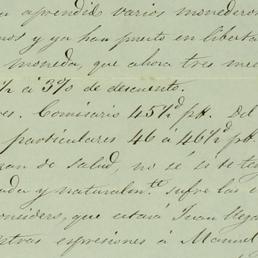 a aprendid varios monederos
nos y ya han puesto en libertad
moneda, que ahora tres me
½ á 3% de descuento.
es. Comisario 45½d pf. Del
particulares 46 á 46½d pf.
gran de salud, no sé si te
da y naturalmte. sufre las
considero, que estará Juan
tras espresiones á Manuel